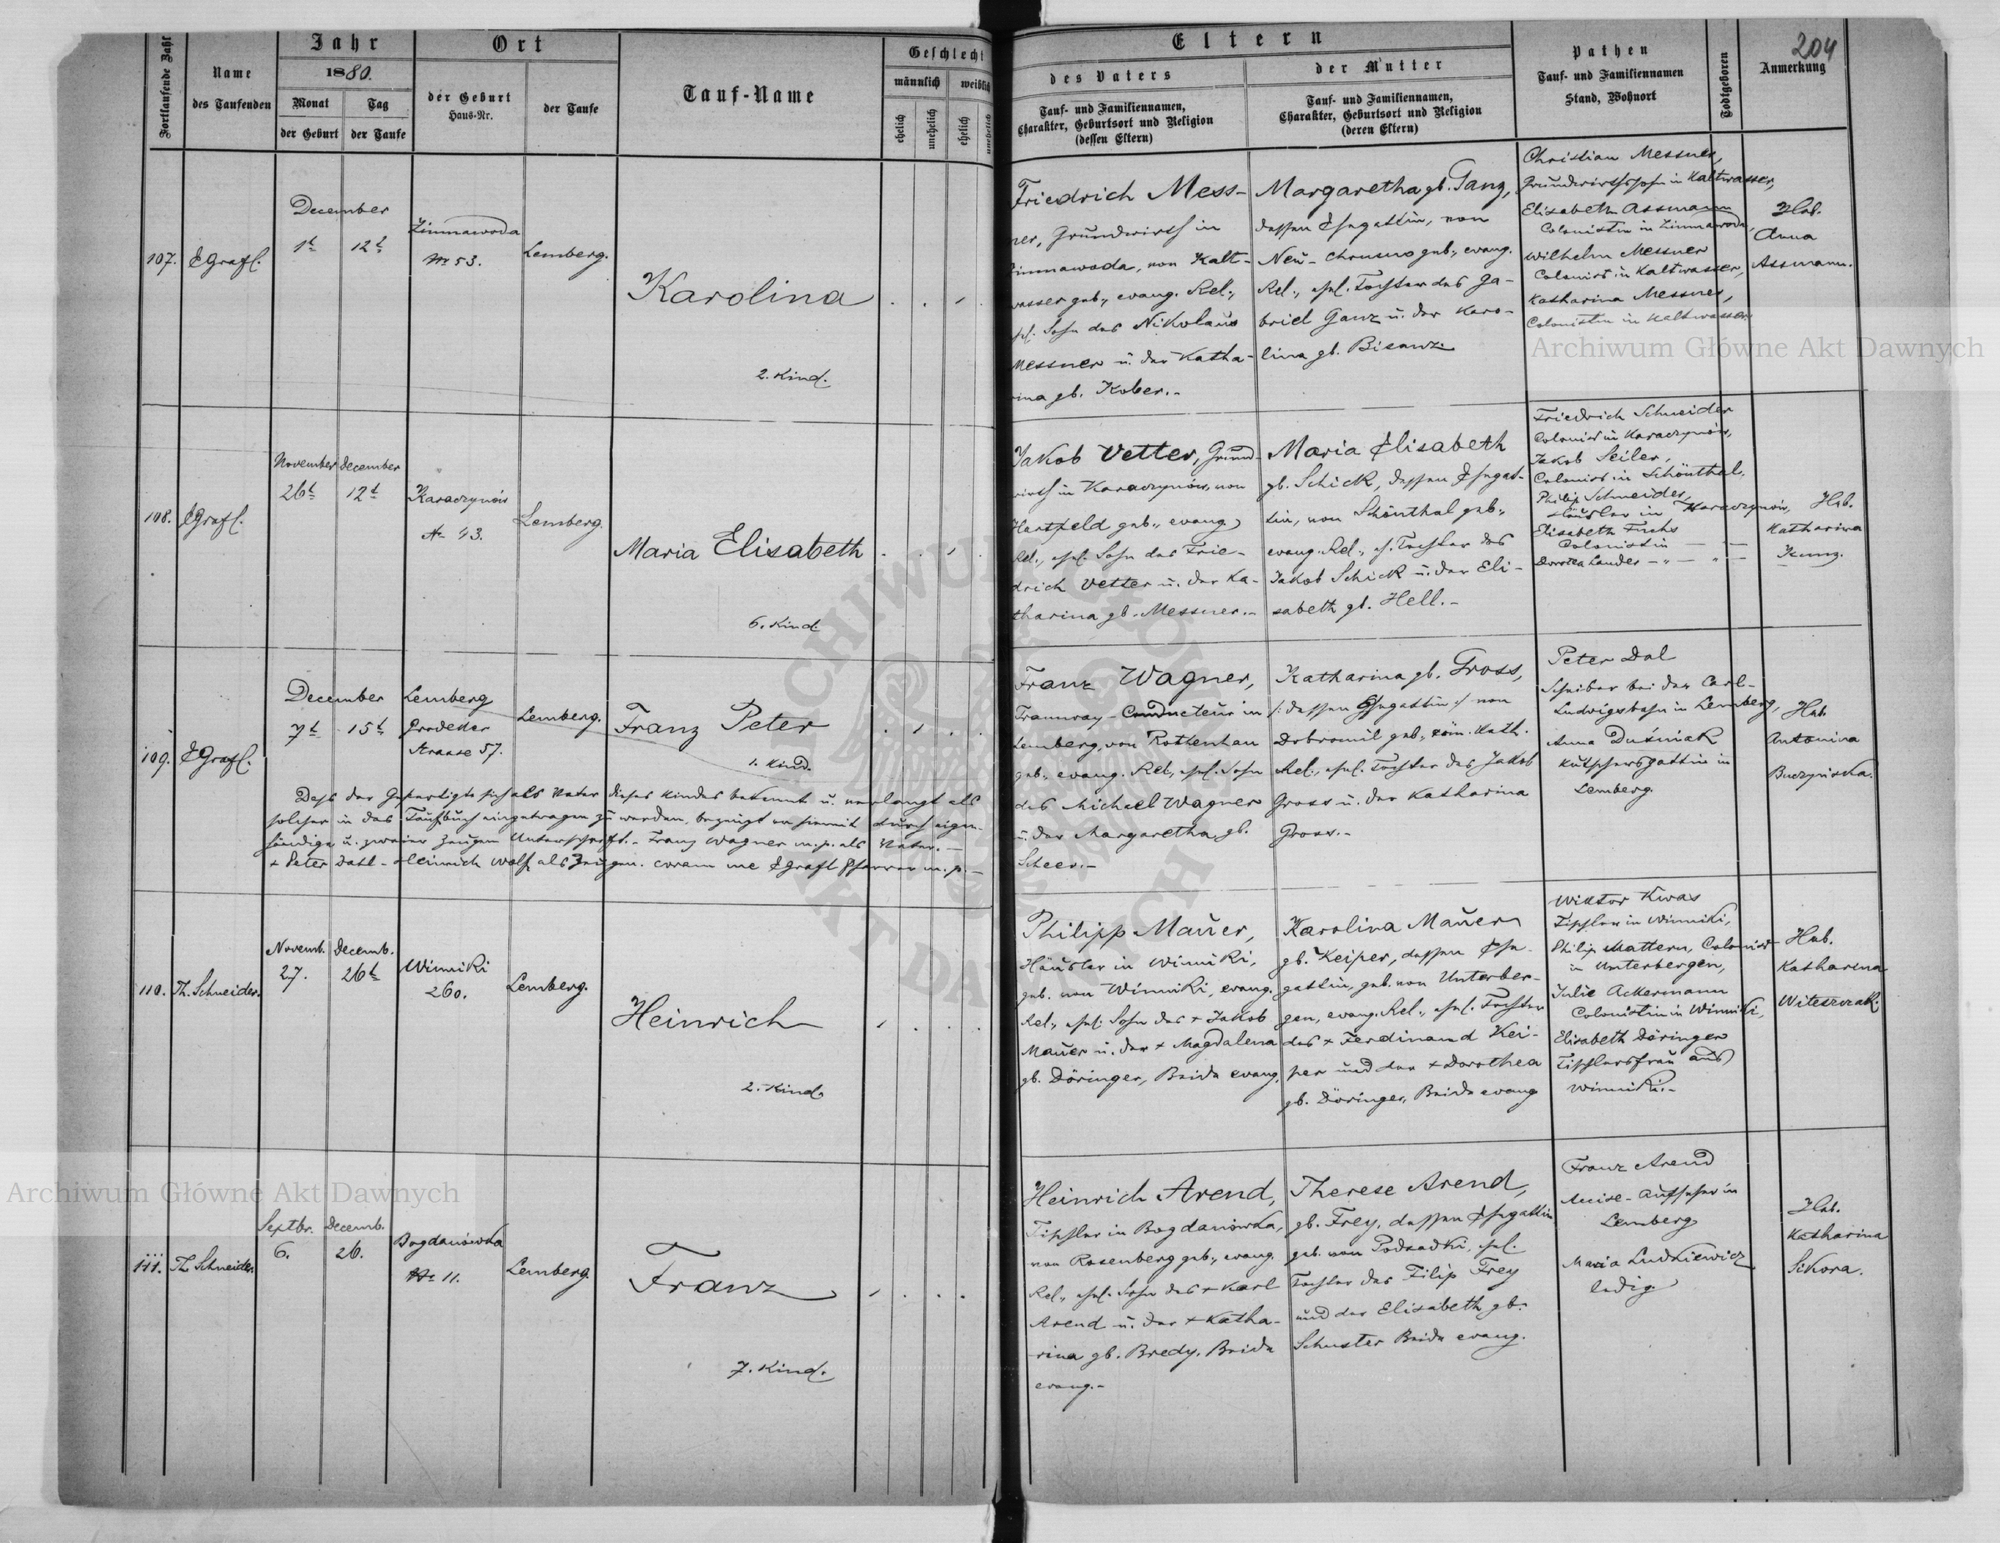 204
Fortlaufende Zahl
Name
des Taufenden
Jahr
1880.
Monat
der Geburt
Tag
der Taufe
Ort
der Geburt
Haus-Nr.
der Taufe
Tauf-Name
Geschlecht
männlich
weiblich
ehelich
unehelich
ehelich
unehelich
Eltern
des Vaters
Tauf- und Familiennamen,
Charakter, Geburtsort und Religion
(dessen Eltern)
der Mutter
Tauf- und Familiennamen,
Charakter, Geburtsort und Religion
(deren Eltern)
Pathen
Tauf- und Familiennamen
Stand, Wohnort
Todtgeboren
Anmerkung
107.
EGrafl.
December
1t
12t
Zimnawoda
Nr 53.
Lemberg.
Karolina
2. Kind.
Friedrich Mess-
ner, Grundwirth in
Zimnawoda, von Kalt-
wasser geb., evang. Rel.,
ehel. Sohn des Nikolaus
Messner u. der Katha-
rina gb. Kober.-
Margaretha gb. Ganz,
dessen Ehegattin, von
Neu-Chrusno geb., evang.
Rel., ehel. Tochter des Ga-
briel Ganz u. der Karo-
lina gb. Bisanz.
Christian Messner,
Grundwirthssohn in Kaltwasser,
Elisabeth Assmann
Colonistin in Zimnawoda,
Wilhelm Messner
Colonist in Kaltwasser,
Katharina Messner,
Colonistin in Kaltwasser.
Heb.
Anna
Assmann.
108.
EGrafl.
November
December
26t
12t
Karaczynów
Nr 43.
Lemberg.
Maria Elisabeth
6. Kind.
Jakob Vetter, Grund-
wirth in Karaczynów, von
Hartfeld geb., evang.
Rel., ehel. Sohn des Frie-
drich Vetter u. der Ka-
tharina gb. Messner.-
Maria Elisabeth
gb. Schick, dessen Ehegat-
tin, von Schönthal geb.,
evang. Rel., e. Tochter des
Jakob Schick u. der Eli-
sabeth gb. Hell.-
Friedrich Schneider
Colonist in Karaczynów,
Jakob Seiler,
Colonist in Schönthal,
Philip Schneider,
Häusler in Karaczynów,
Elisabeth Fuchs
Colonistin
Dorotea Lauder
Heb.
Katharina
Kunz.
109.
EGrafl.
December
7t
15t
Lemberg
Grodeker
Strasse 57.
Lemberg.
Franz Peter
1. Kind.
Dass der Gefertigte sich als Vater dieses Kindes bekennt u. verlangt als
solcher in das Taufbuch eingetragen zu werden, bezeugt er hiemit durch eigen-
händige u. zweier Zeugen Unterschrift.- Franz Wagner m.p. als Vater.-
+ Peter Dahl - Heinrich Wolf als Zeugen. coram me EGrafl Pfarrer m.p.-
Franz Wagner,
Tramway-Conducteur in
Lemberg, von Rottenhan
geb., evang. Rel., ehel. Sohn
des Michael Wagner
u. der Margaretha, gb.
Scheer.-
Katharina gb. Gross,
/: dessen Ehegattin :/ von
Dobromil geb., röm. Kath.
Rel., ehel. Tochter des Jakob
Gross u. der Katharina
Gross.-
Peter Dal
Schreiber bei der Carl-
Ludwigsbahn in Lemberg,
Anna Duśniak
Kutschersgattin in
Lemberg.
Heb.
Antonina
Buczyńska.
110.
Th. Schneider.
Novemb.
Decemb.
27.
26t
Winniki
260.
Lemberg.
Heinrich
2. Kind.
Philipp Mauer,
Häusler in Winniki,
geb. von Winniki, evang.
Rel., ehel. Sohn des + Jakob
Mauer u. der + Magdalena
gb. Döringer, Beide evang.
Karolina Mauer
gb. Keiper, dessen Ehe-
gattin, geb. von Unterber-
gen, evang. Rel., ehel. Tochter
des + Ferdinand Kei-
per und der + Dorothea
gb. Döringer, Beide evang
Wiktor Kwas
Tischler in Winniki,
Philip Mattern, Colonist
in Unterbergen,
Julie Ackermann
Colonistin in Winniki,
Elisabeth Döringer
Tischlersfrau aus
Winniki.-
Heb.
Katharina
Witeszczak.
111.
Th. Schneider.
Septbr.
Decemb.
6.
26.
Bogdanówka
Nr 11.
Lemberg.
Franz
7. Kind.
Heinrich Arend,
Tischler in Bogdanówka,
von Rosenberg geb., evang.
Rel., ehel. Sohn des + Karl
Arend u. der + Katha-
rina gb. Bredy, Beide
evang.-
Therese Arend,
gb. Frey, dessen Ehegattin
geb. von Podsadki, ehel.
Tochter des Filip Frey
und der Elisabeth gb.
Schuster Beide evang.
Franz Arend
Accise-Aufseher in
Lemberg
Maria Ludkiewicz
ledig
Heb.
Katharina
Sikora.
Archiwum Główne Akt Dawnych
Archiwum Główne Akt Dawnych